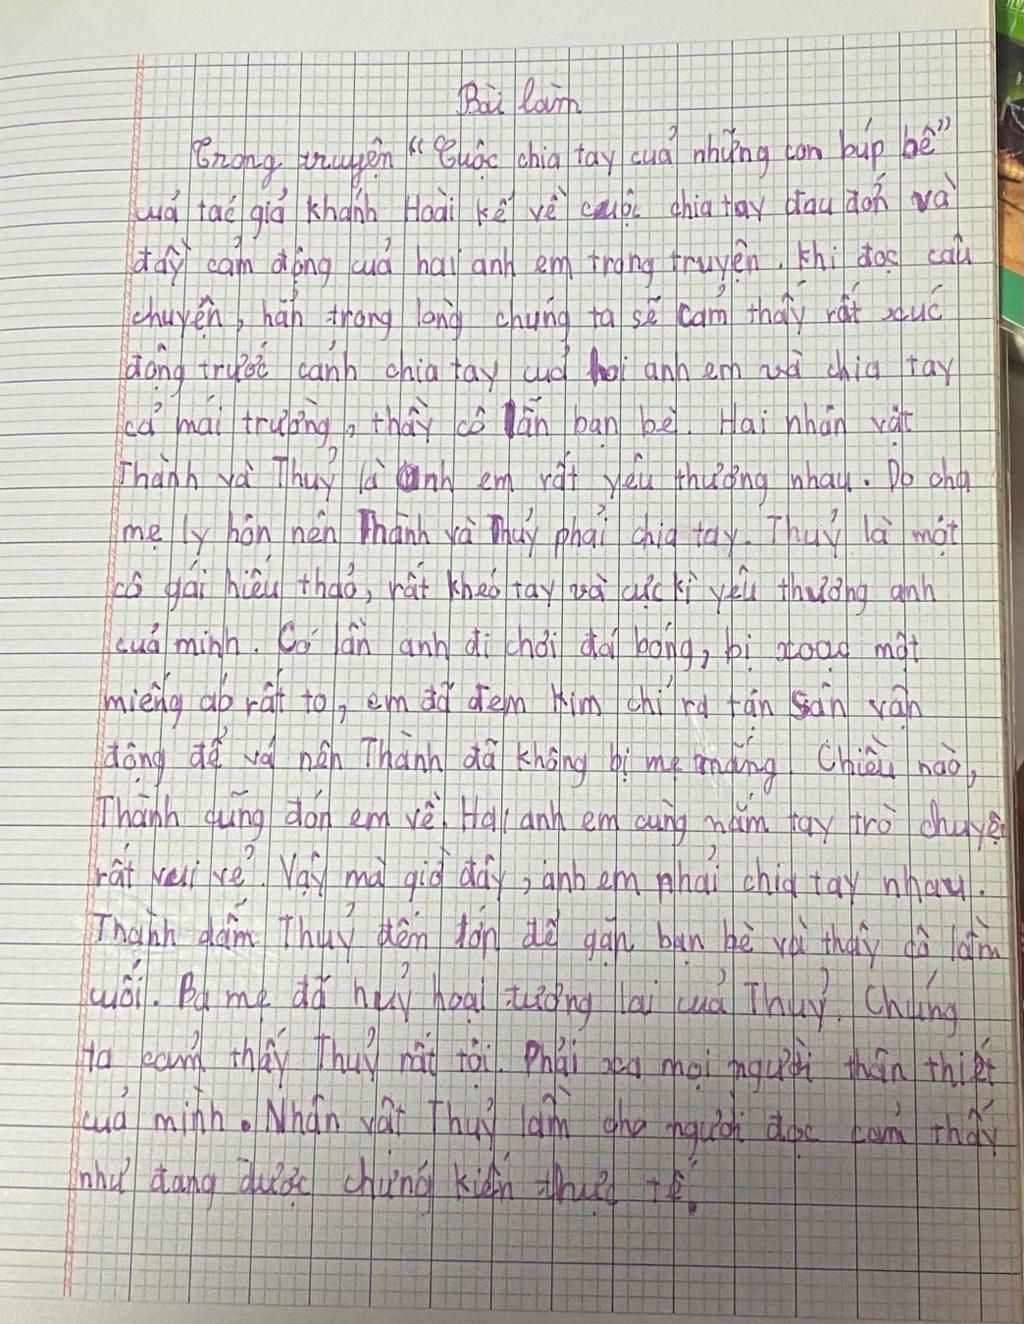 Bài làm
Trong truyện "Cuộc chia tay của những con búp bê"
của tác giả Khánh Hoài kể về cuộc chia tay đau đớn và
đầy cảm động của hai anh em trong truyện. Khi đọc câu
chuyện, hẳn trong lòng chúng ta sẽ cảm thấy rất xúc
động trước cảnh chia tay của hai anh em và chia tay
cả mái trường, thầy cô lẫn bạn bè. Hai nhân vật
Thành và Thuỷ là anh em rất yêu thương nhau. Do cha
mẹ ly hôn nên Thành và Thuỷ phải chia tay. Thuỷ là một
cô gái hiếu thảo, rất khéo tay và cực kì yêu thương anh
của mình. Có lần anh đi chơi đá bóng, bị xoạc một
miếng áo rất to, em đã đem kim chỉ ra tận sân vận
động để vá nên Thành đã không bị mẹ mắng. Chiều nào,
Thành cũng đón em về. Hai anh em cùng nắm tay trò chuyện
rất vui vẻ. Vậy mà giờ đây, anh em phải chia tay nhau.
Thành dẫm Thuỷ đến lớn để gặn bạn bè và thầy cô lầm
cuối. Ba mẹ đã huỷ hoại tương lai của Thuỷ. Chúng
ta cảm thấy Thuỷ rất tội. Phải xa mọi người thân thiết
của mình. Nhân vật Thuỷ làm cho người đọc cảm thấy
như đang được chứng kiến thực tế.